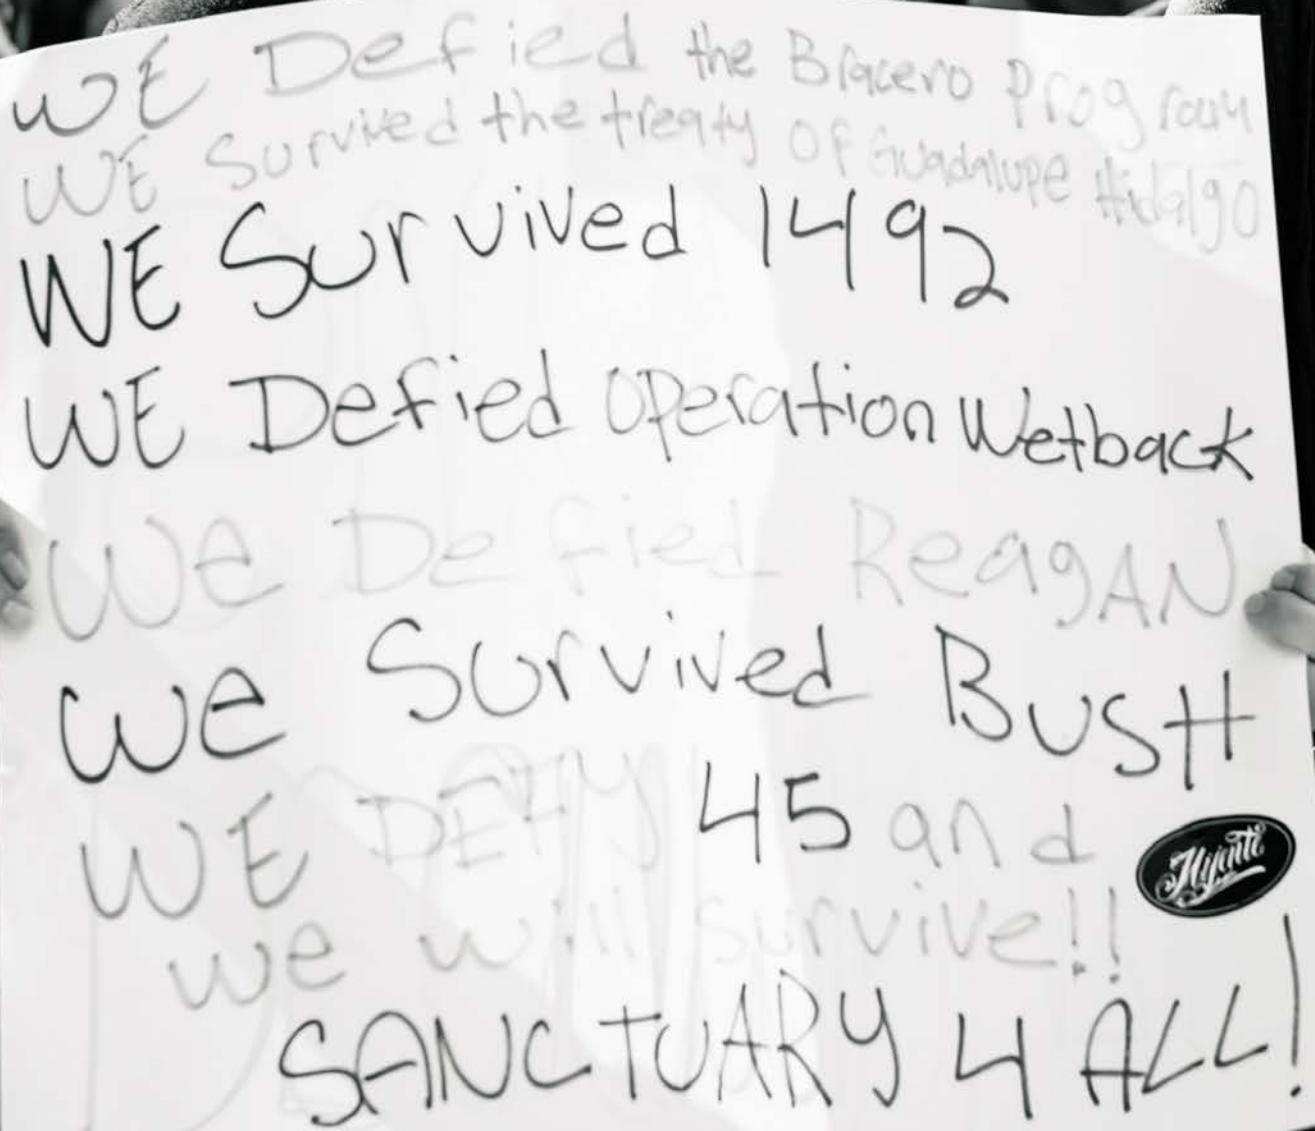 WE Defied the Bracero Program
WE Survived the treaty Of Guadalupe Hidalgo
WE Survived 1492
WE Defied Operation Wetback
We Defied ReagAN
We Survived BUSH
WE DEFY 45 and
we will survive!!
Mijente
SANCTUARY 4 ALL!